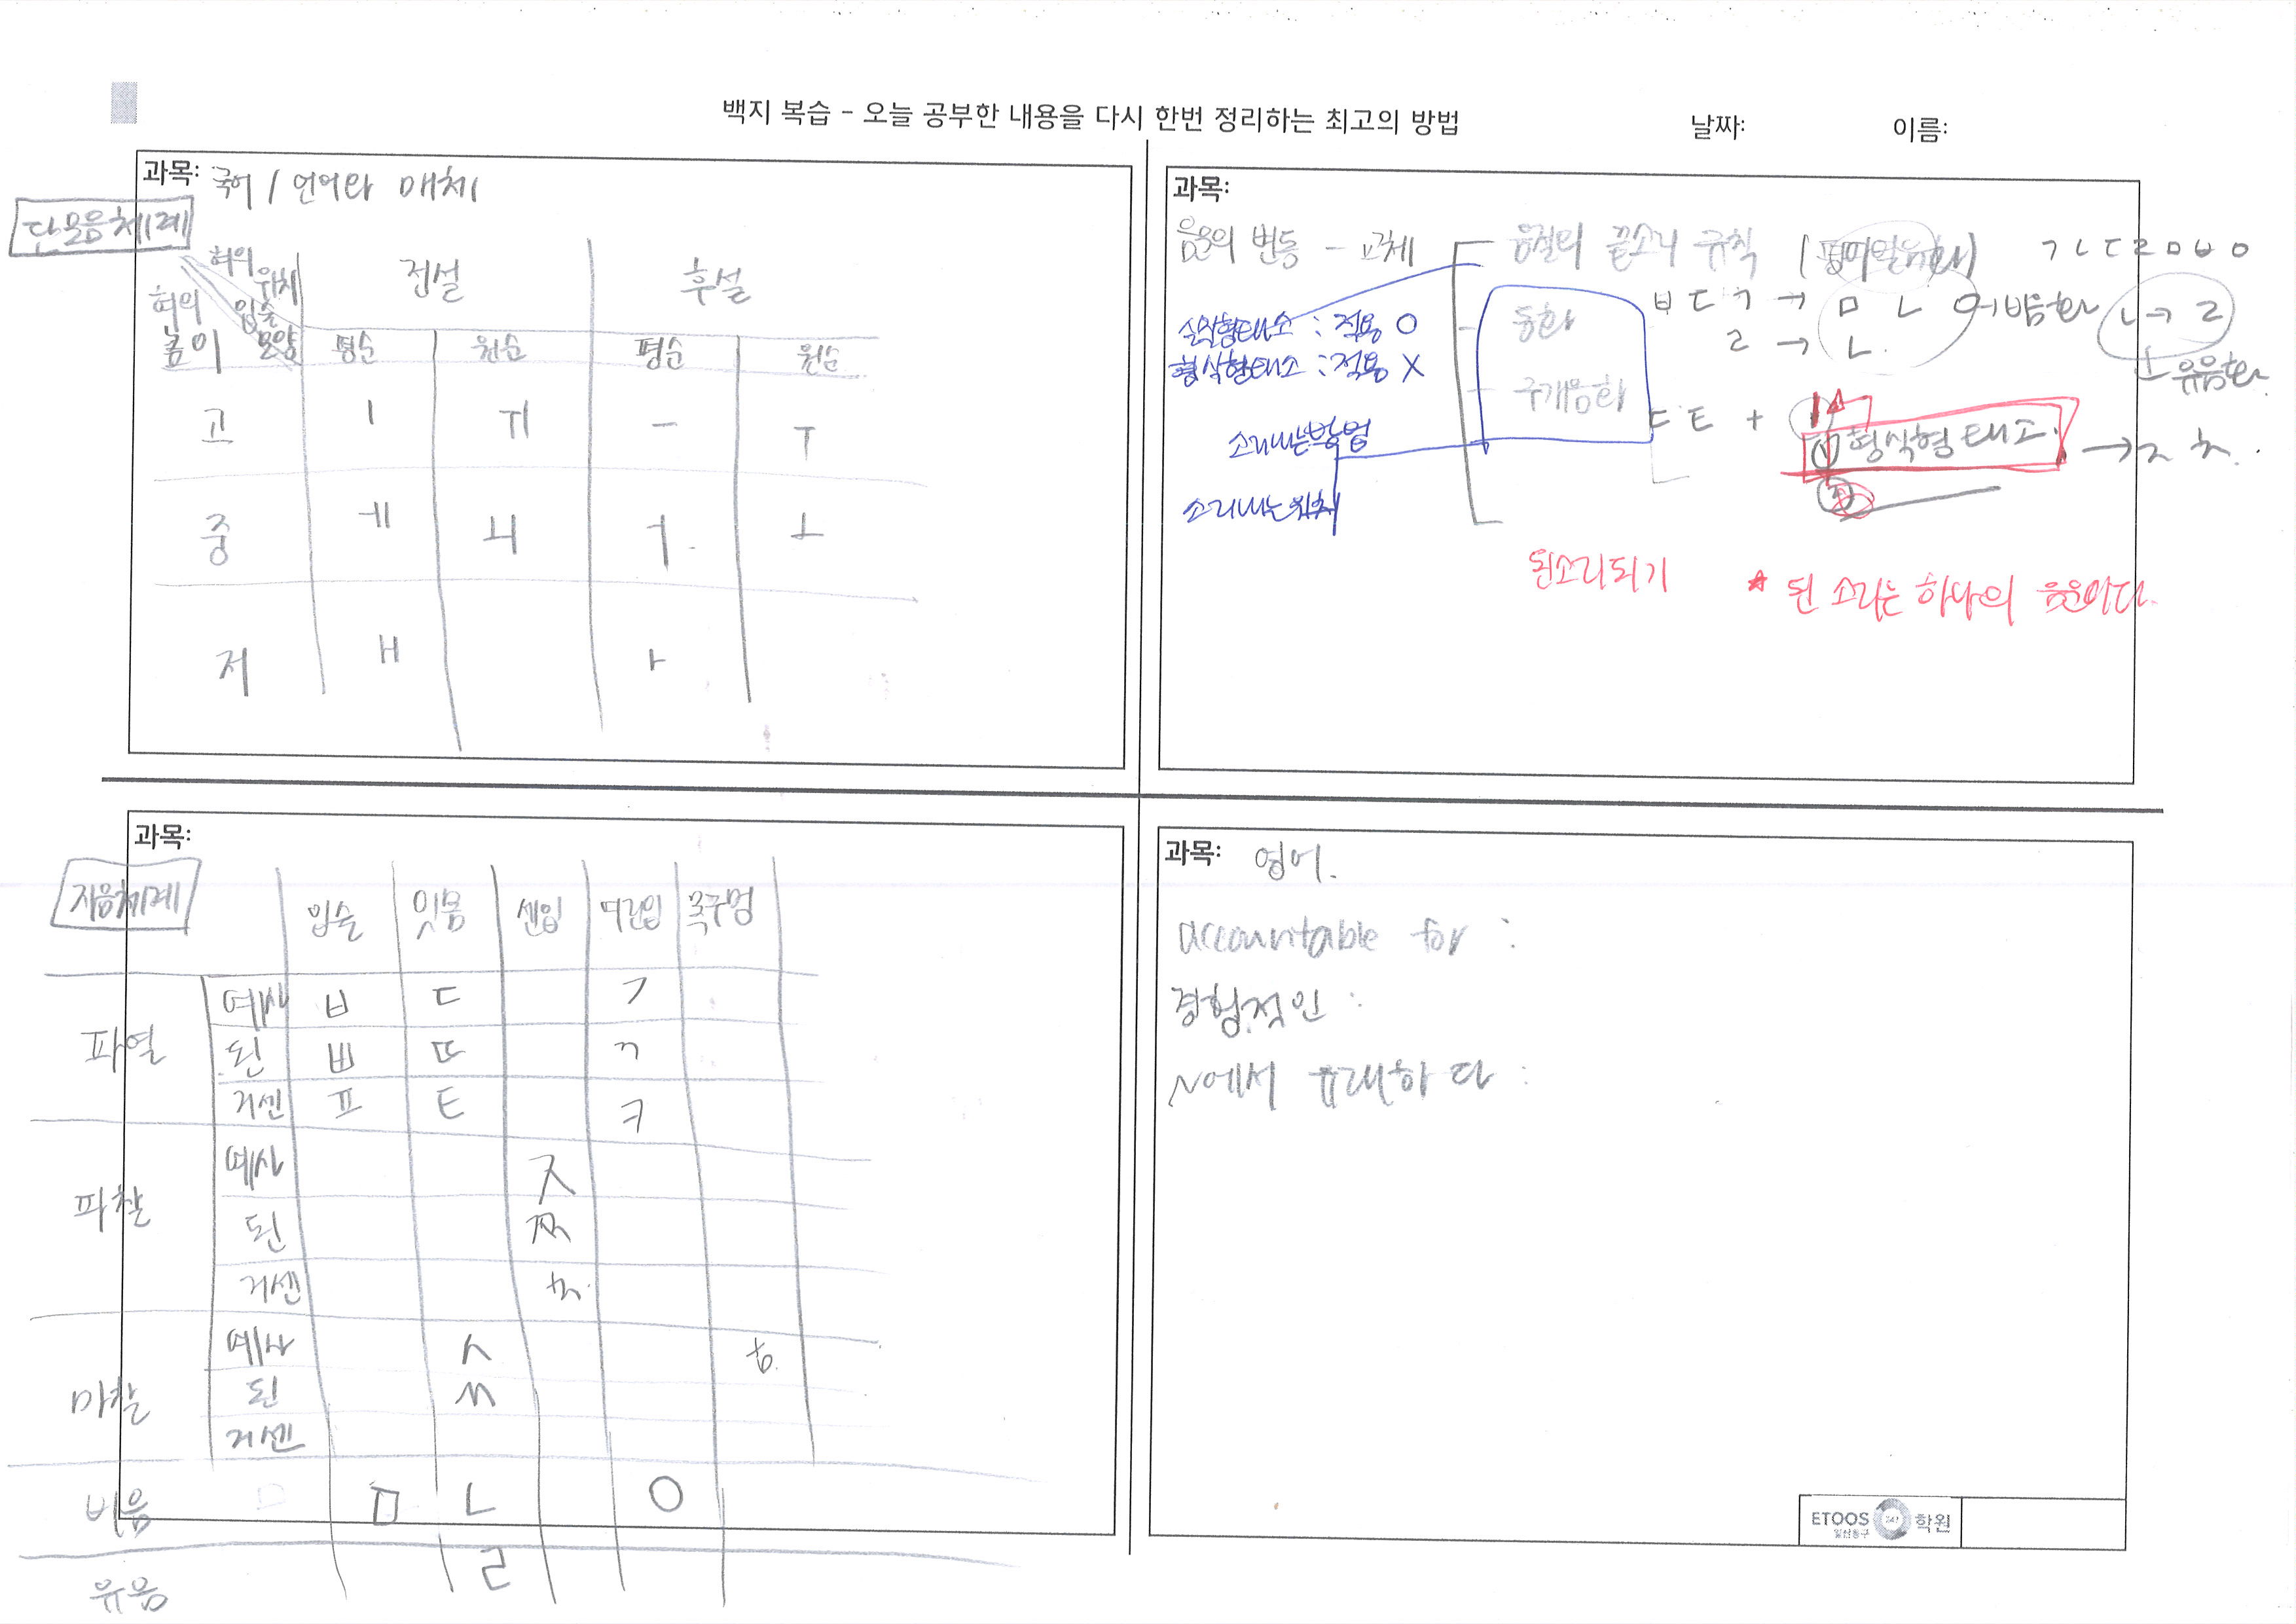 백지 복습 - 오늘 공부한 내용을 다시 한번 정리하는 최고의 방법
날짜:
이름:
과목: 국어 / 언어와 매체
단모음체계
혀의 위치
입술 모양
혀의 높이
전설 후설
평순 원순 평순 원순
고 ㅣ ㅟ ㅡ ㅜ
중 ㅔ ㅚ ㅓ ㅗ
저 ㅐ ㅏ
과목:
음운의 변동 - 교체
음절의 끝소리 규칙 ㄱㄴㄷㄹㅁㅂㅇ
동화 ㅂㄷㄱ → ㅁㄴㅇ 비음화 ㄴ→ㄹ
ㄹ → ㄴ
유음화
실질형태소 : 적용 O
형식형태소 : 적용 X
구개음화 ㄷㅌ + ㅣ
형식형태소 → ㅈ ㅊ
소리내는방법
소리내는위치
된소리되기
★ 된소리는 하나의 음운이다.
과목:
자음체계
입술 잇몸 센입 여린입 목구멍
파열
예사 ㅂ ㄷ ㄱ
된 ㅃ ㄸ ㄲ
거센 ㅍ ㅌ ㅋ
파찰
예사 ㅈ
된 ㅉ
거센 ㅊ
마찰
예사 ㅅ ㅎ
된 ㅆ
거센
비음 ㅁ ㄴ ㅇ
유음 ㄹ
과목: 영어.
accountable for :
경험적인 :
~에서 유래하다 :
ETOOS 247 학원
일산동구